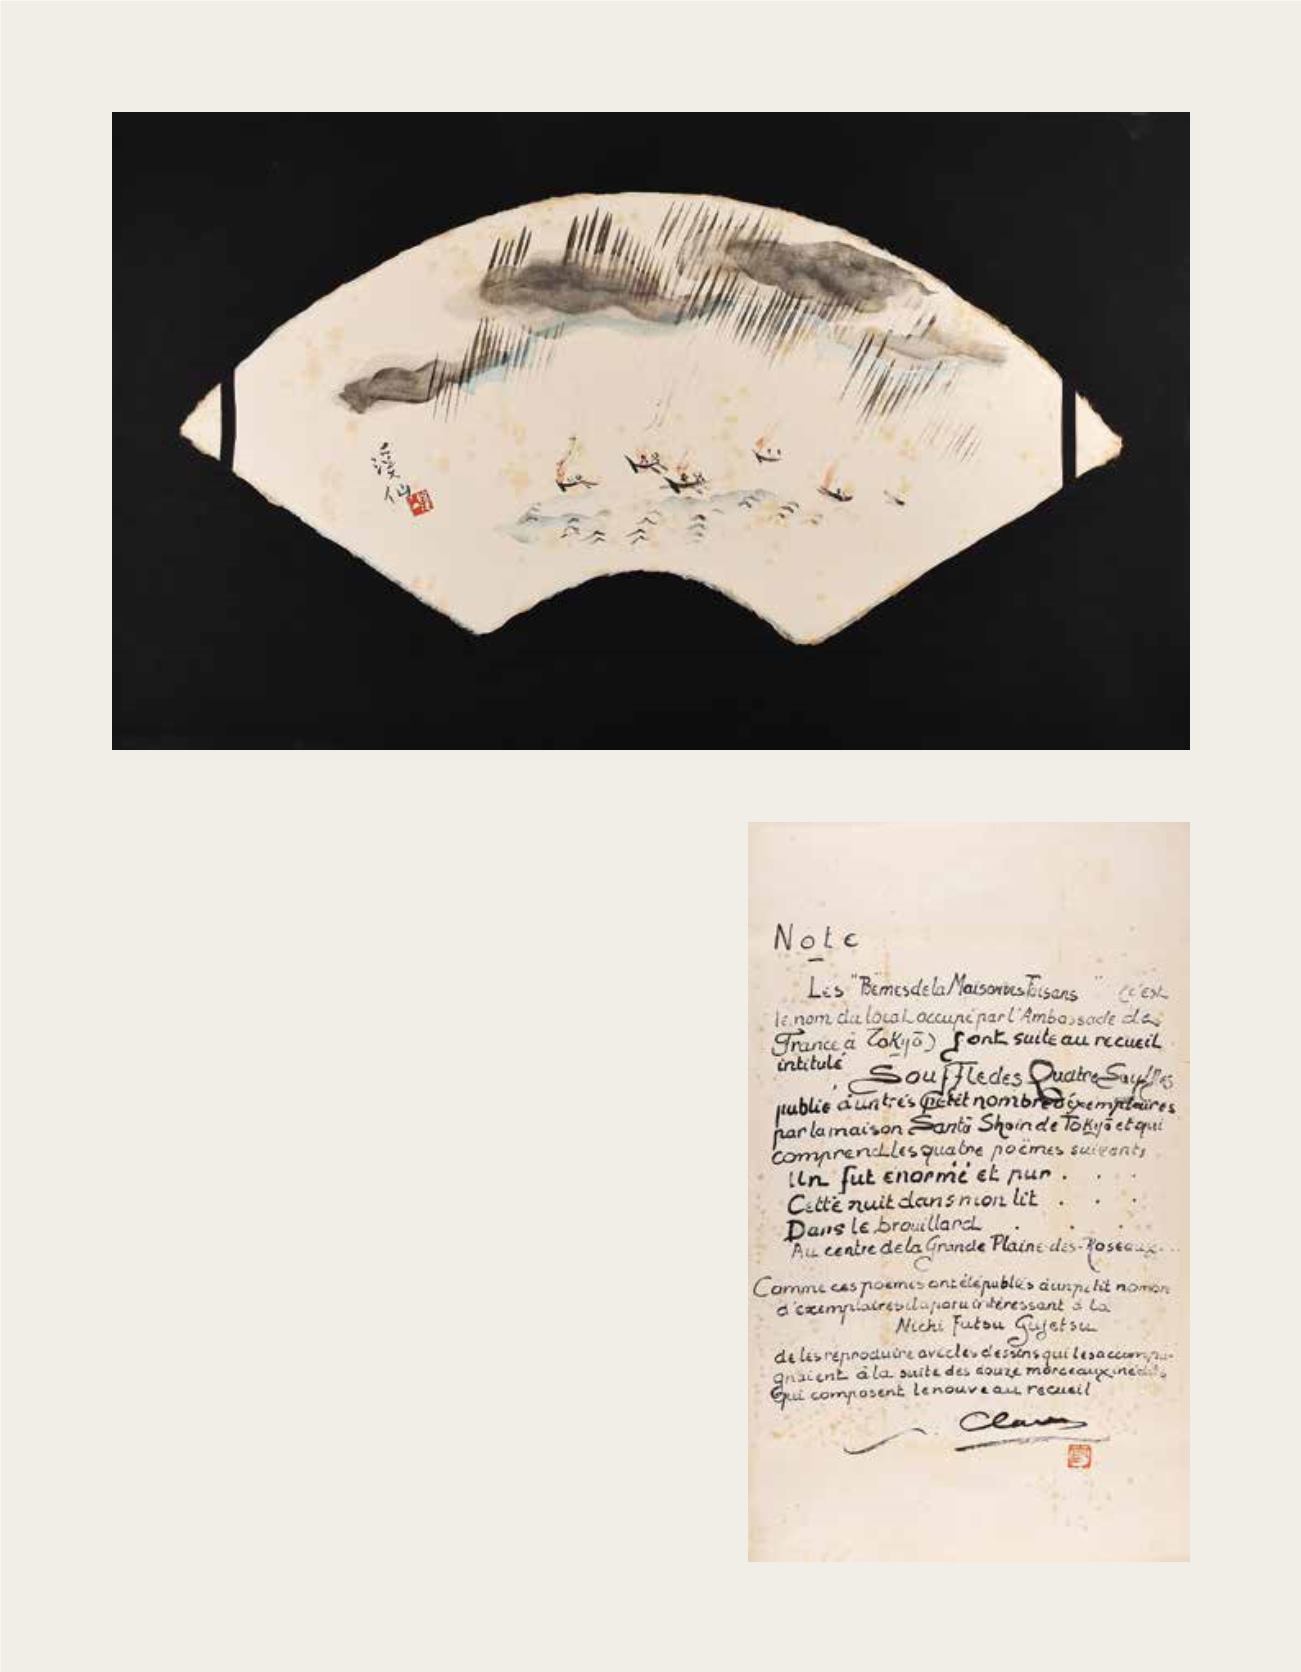 渓仙
Note
Les "Poëmes de la Maison des Faisans" (c'est
le nom du local occupé par l'Ambassade de
France à Tokyō) font suite au recueil
intitulé
Souffle des Quatre Souffles
publié à un très petit nombre d'exemplaires
par la maison Santō Shoin de Tokyō et qui
comprend les quatre poëmes suivants
Un fut énorme et pur . . .
Cette nuit dans mon lit . . .
Dans le brouillard . . .
Au centre de la Grande Plaine-des-Roseaux...
Comme ces poëmes ont été publiés à un petit nombre
d'exemplaires il a paru intéressant à la
Nichi Futsu Gujetsu
de les reproduire avec les dessins qui les accompa-
gnaient à la suite des douze morceaux inédits
qui composent le nouveau recueil